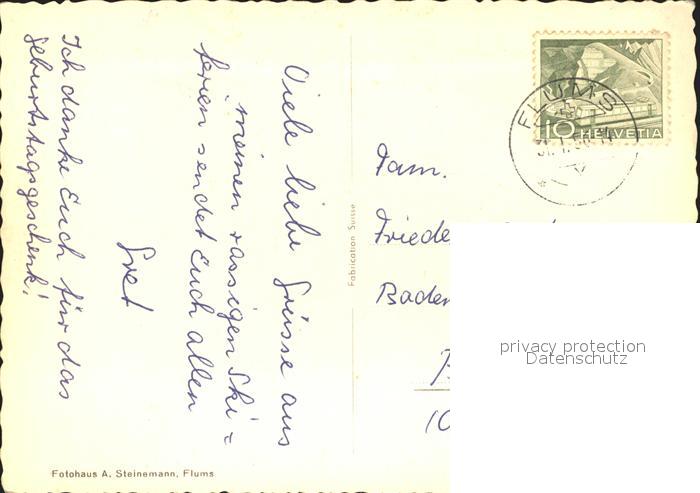 Viele liebe Grüsse aus
meinen rassigen Ski=
ferien sendet Euch allen
Gret
Ich danke Euch für das
Geburtstagsgeschenk!
Fotohaus A. Steinemann, Flums
Fabrication Suisse
10 HELVETIA
FLUMS
Fam.
Baden
privacy protection
Datenschutz